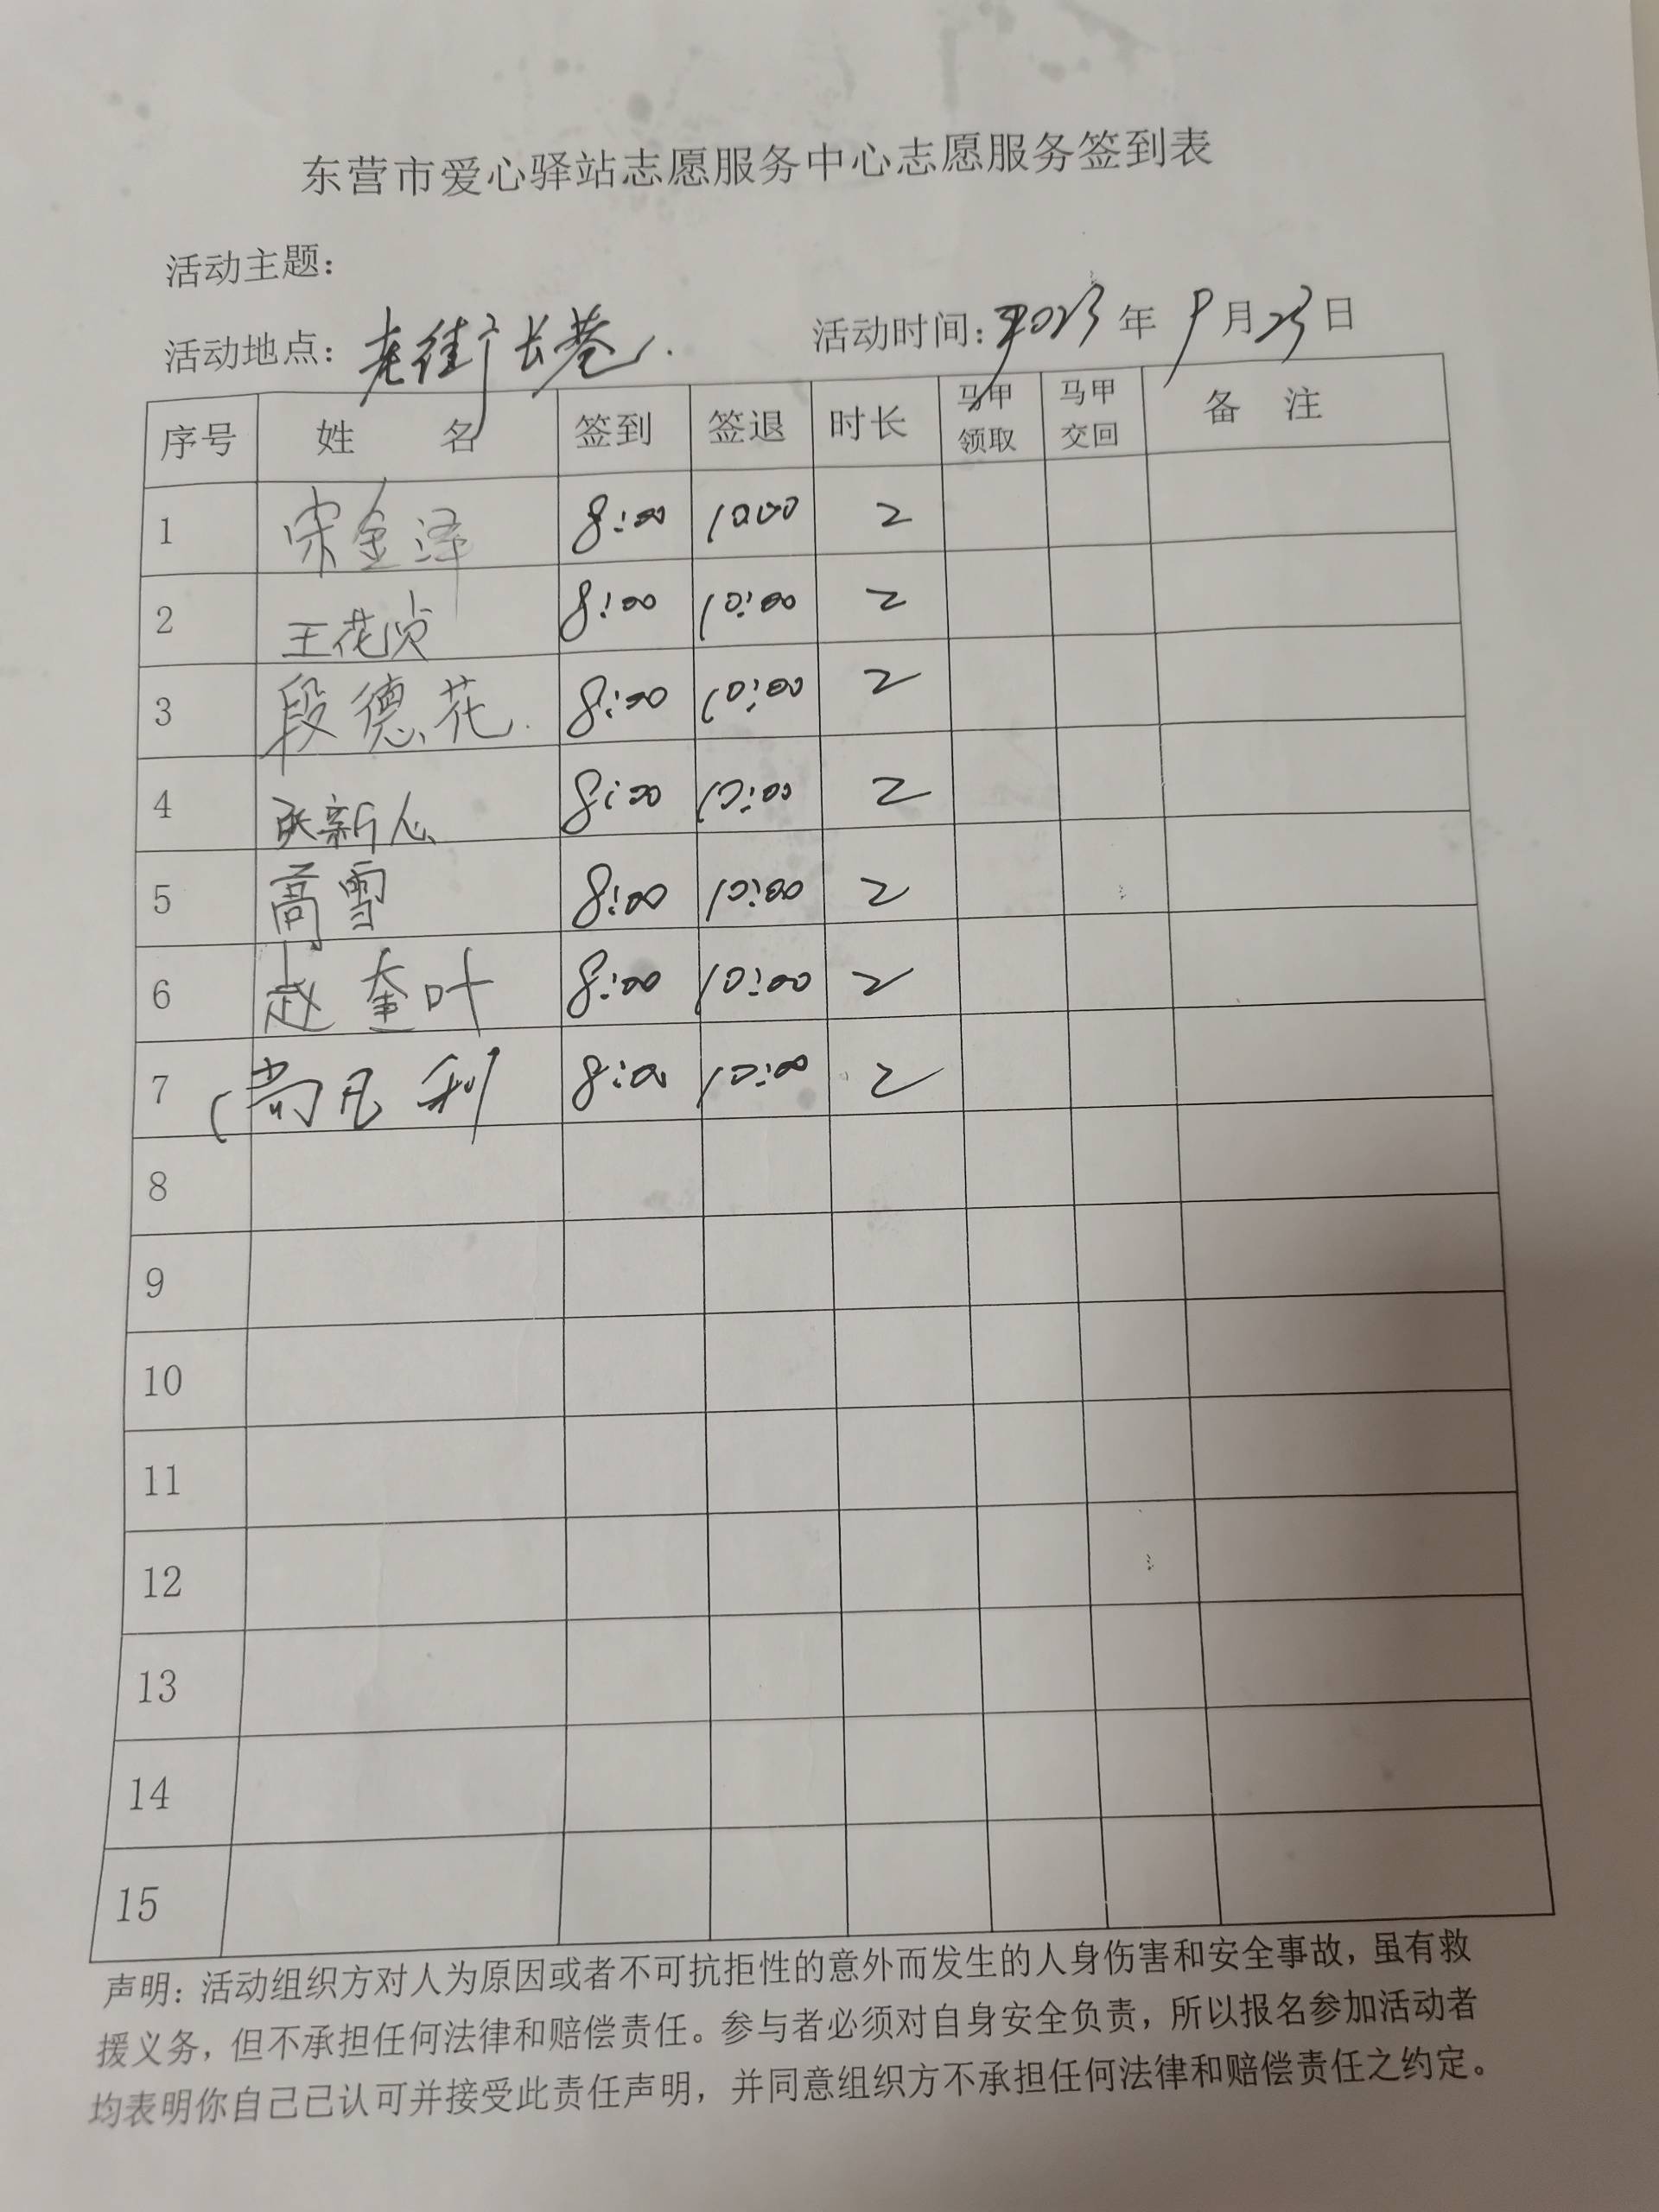 东营市爱心驿站志愿服务中心志愿服务签到表
活动主题：
活动地点：老街长巷. 活动时间：2023年9月23日
序号 姓 名 签到 签退 时长 马甲领取 马甲交回 备 注
1 宋金泽 8:00 10:00 2
2 王花贞 8:00 10:00 2
3 段德花. 8:00 10:00 2
4 张新 8:00 10:00 2
5 高雪 8:00 10:00 2
6 赵奎叶 8:00 10:00 2
7 尚凡利 8:00 10:00 2
8
9
10
11
12
13
14
15
声明：活动组织方对人为原因或者不可抗拒性的意外而发生的人身伤害和安全事故，虽有救
援义务，但不承担任何法律和赔偿责任。参与者必须对自身安全负责，所以报名参加活动者
均表明你自己已认可并接受此责任声明，并同意组织方不承担任何法律和赔偿责任之约定。